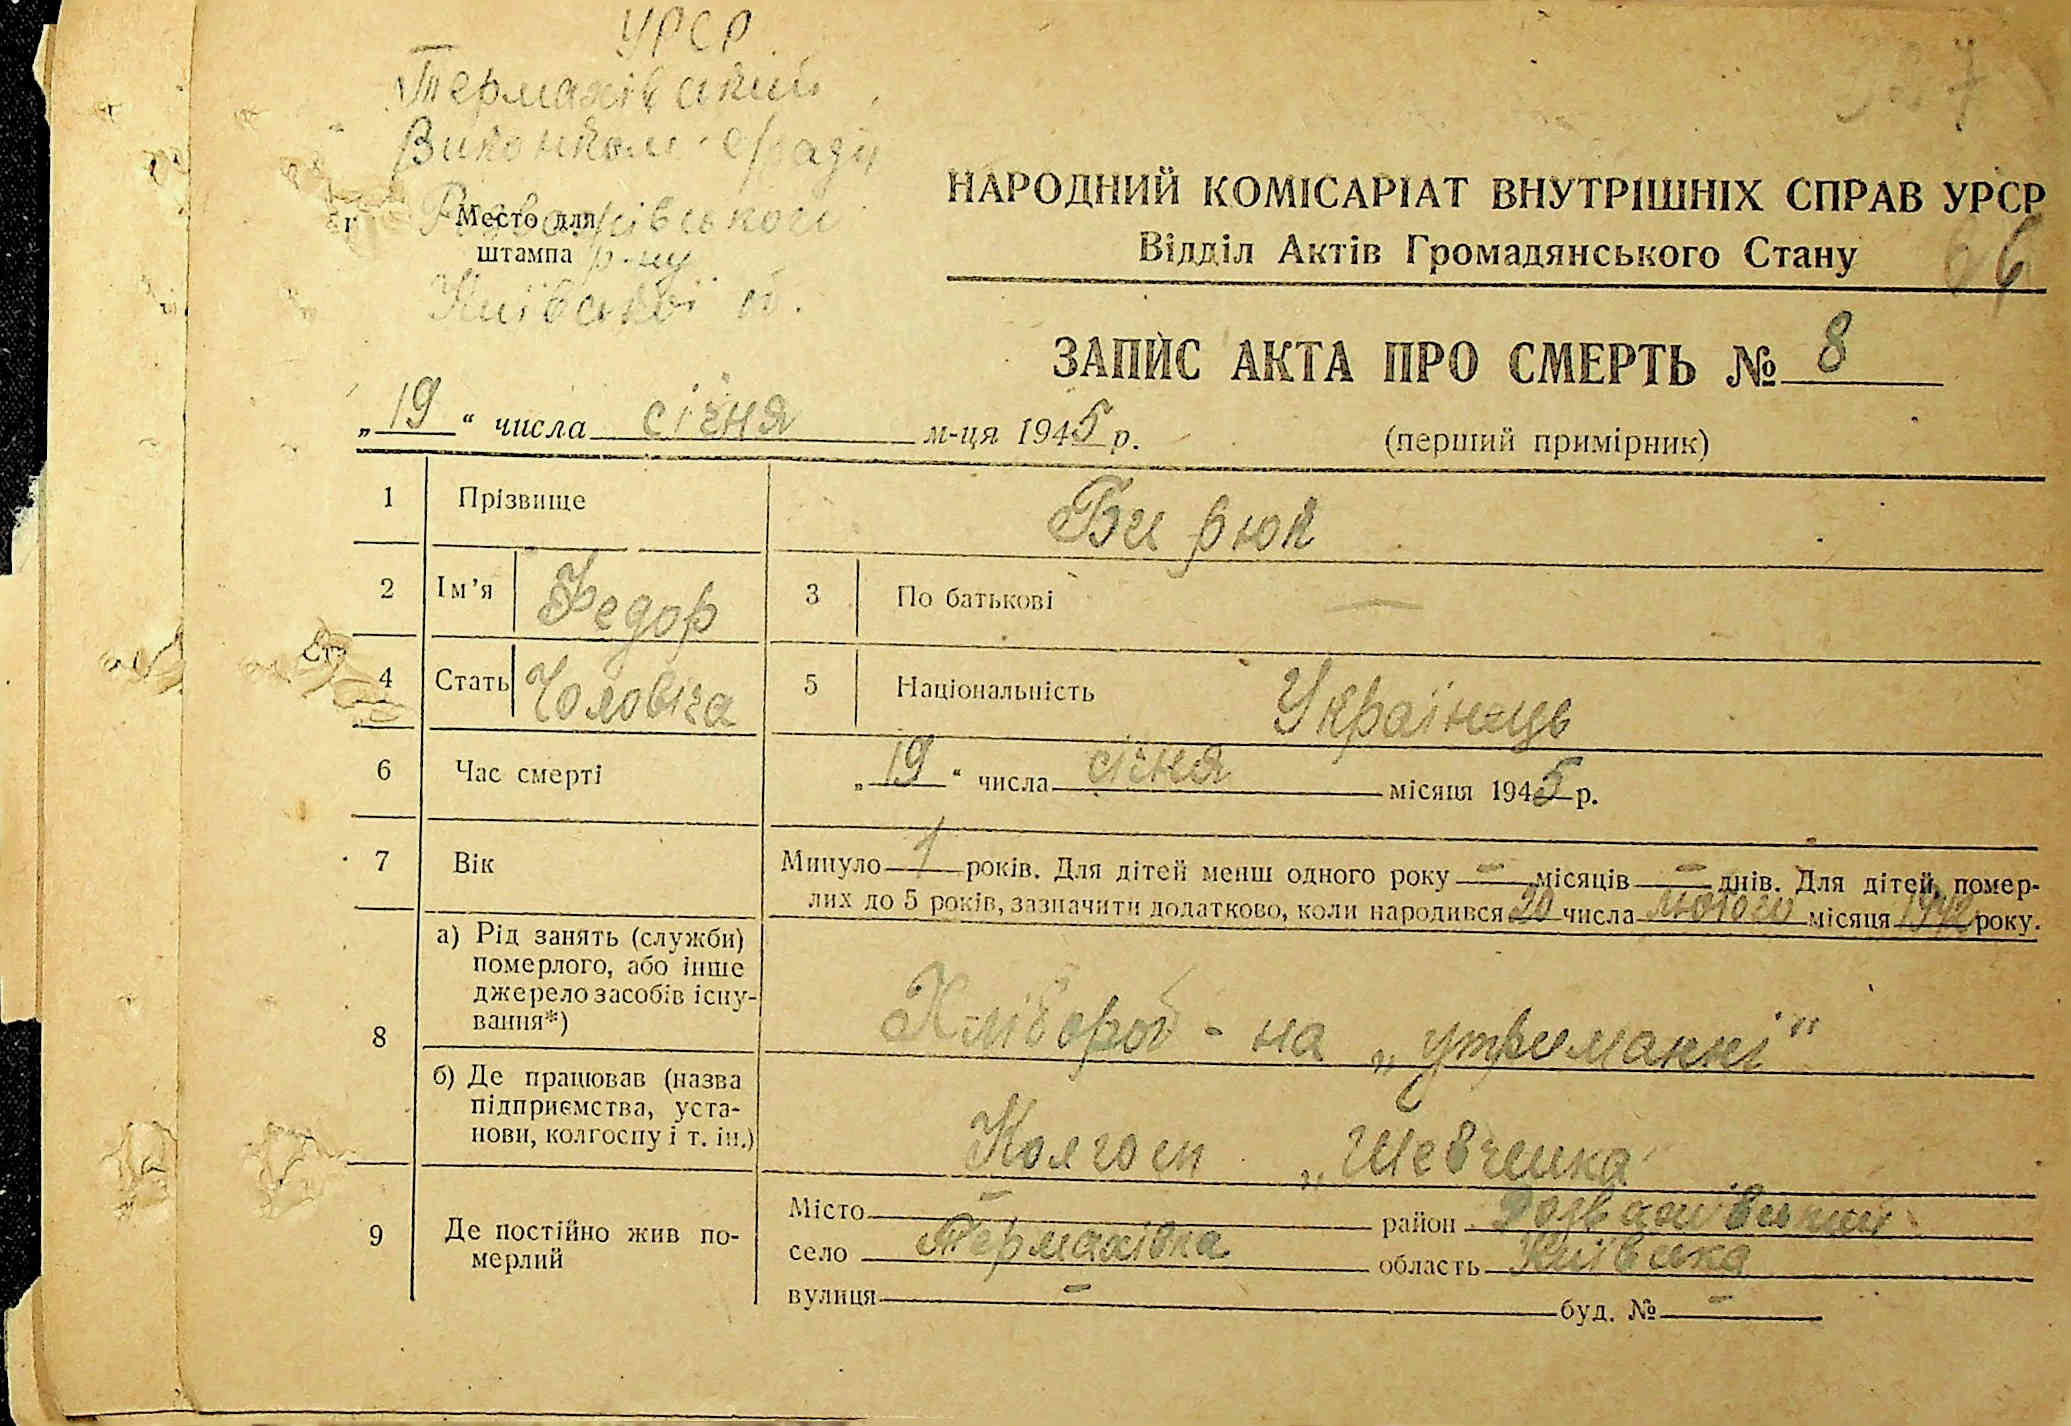 УРСР
Термахівський
Виконком с/ради
Розважівського
Место для
штампа
р-ну
Київської о.
66
НАРОДНИЙ КОМІСАРІАТ ВНУТРІШНІХ СПРАВ УРСР
Відділ Актів Громадянського Стану
ЗАПИС АКТА ПРО СМЕРТЬ № 8
„19“ числа січня м-ця 1945 р.
(перший примірник)
1 Прізвище Бирюк
2 Ім'я Федор 3 По батькові —
4 Стать Чоловіча 5 Національність Українець
6 Час смерті „19“ числа січня місяця 1945 р.
7 Вік Минуло 1 років. Для дітей менш одного року – місяців – днів. Для дітей, помер-
лих до 5 років, зазначити додатково, коли народився 20 числа лютого місяця року.
8 а) Рід занять (служби)
померлого, або інше
джерело засобів існу-
вання*)
Хлібороб - на „утриманні"
б) Де працював (назва
підприємства, уста-
нови, колгоспу і т. ін.)
Колгосп „Шевченка"
9 Де постійно жив по-
мерлий
Місто – район Розважівський
село Термахівка область Київська
вулиця – буд. № –